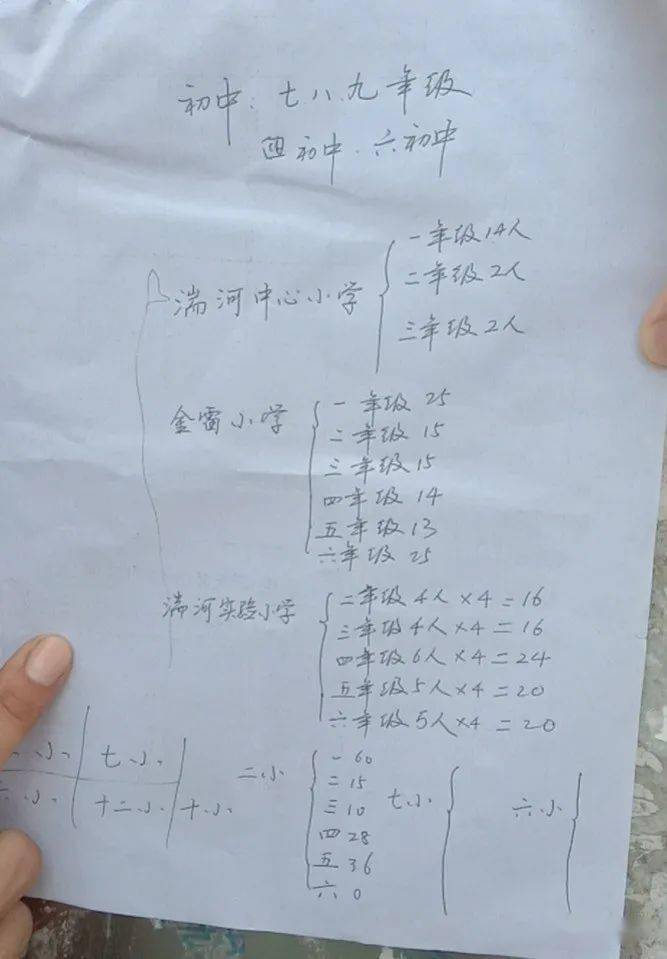 初中：七.八.九年级
四初中.六初中
湍河中心小学
一年级14人
二年级2人
三年级2人
金雷小学
一年级 25
二年级 15
三年级 15
四年级 14
五年级 13
六年级 25
湍河实验小学
二年级4人×4=16
三年级4人×4=16
四年级6人×4=24
五年级5人×4=20
六年级5人×4=20
小 七小
六小 十二小 十小
二小
一 60
二 15
三 10
四 28
五 36
六 0
七小
六小